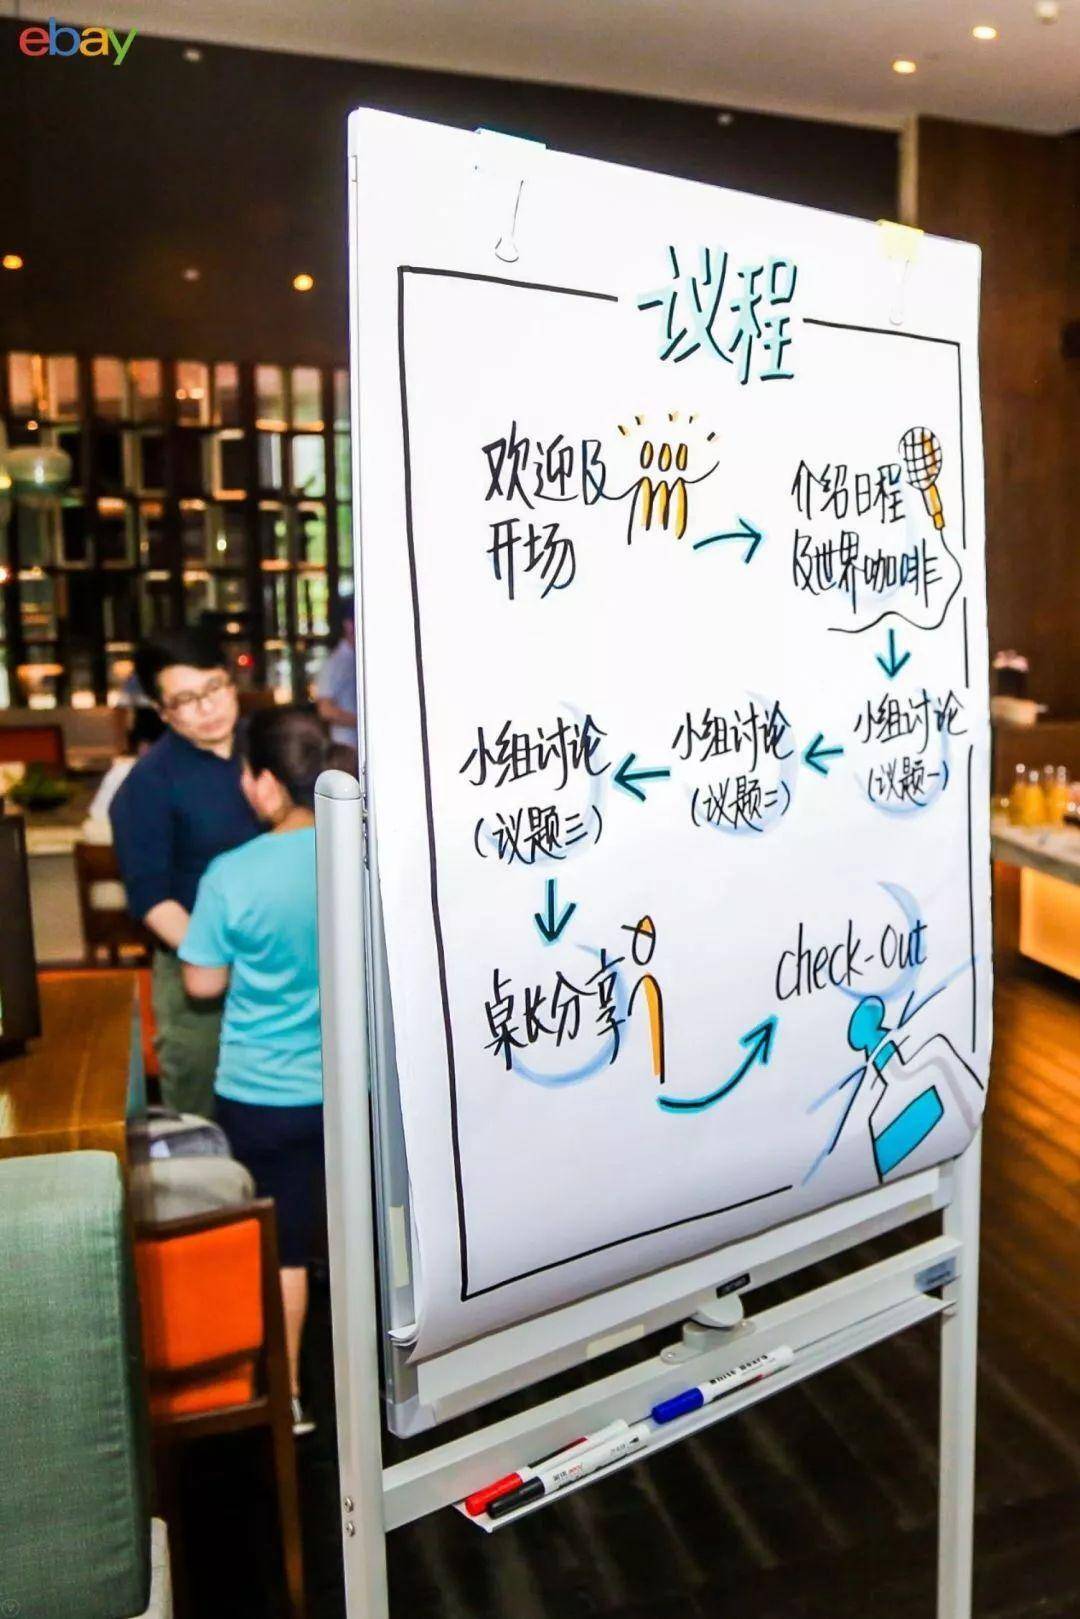 ebay
议程
欢迎及
开场
介绍日程
及世界咖啡
小组讨论
(议题一)
小组讨论
(议题二)
小组讨论
(议题三)
桌长分享
check-out
White Board